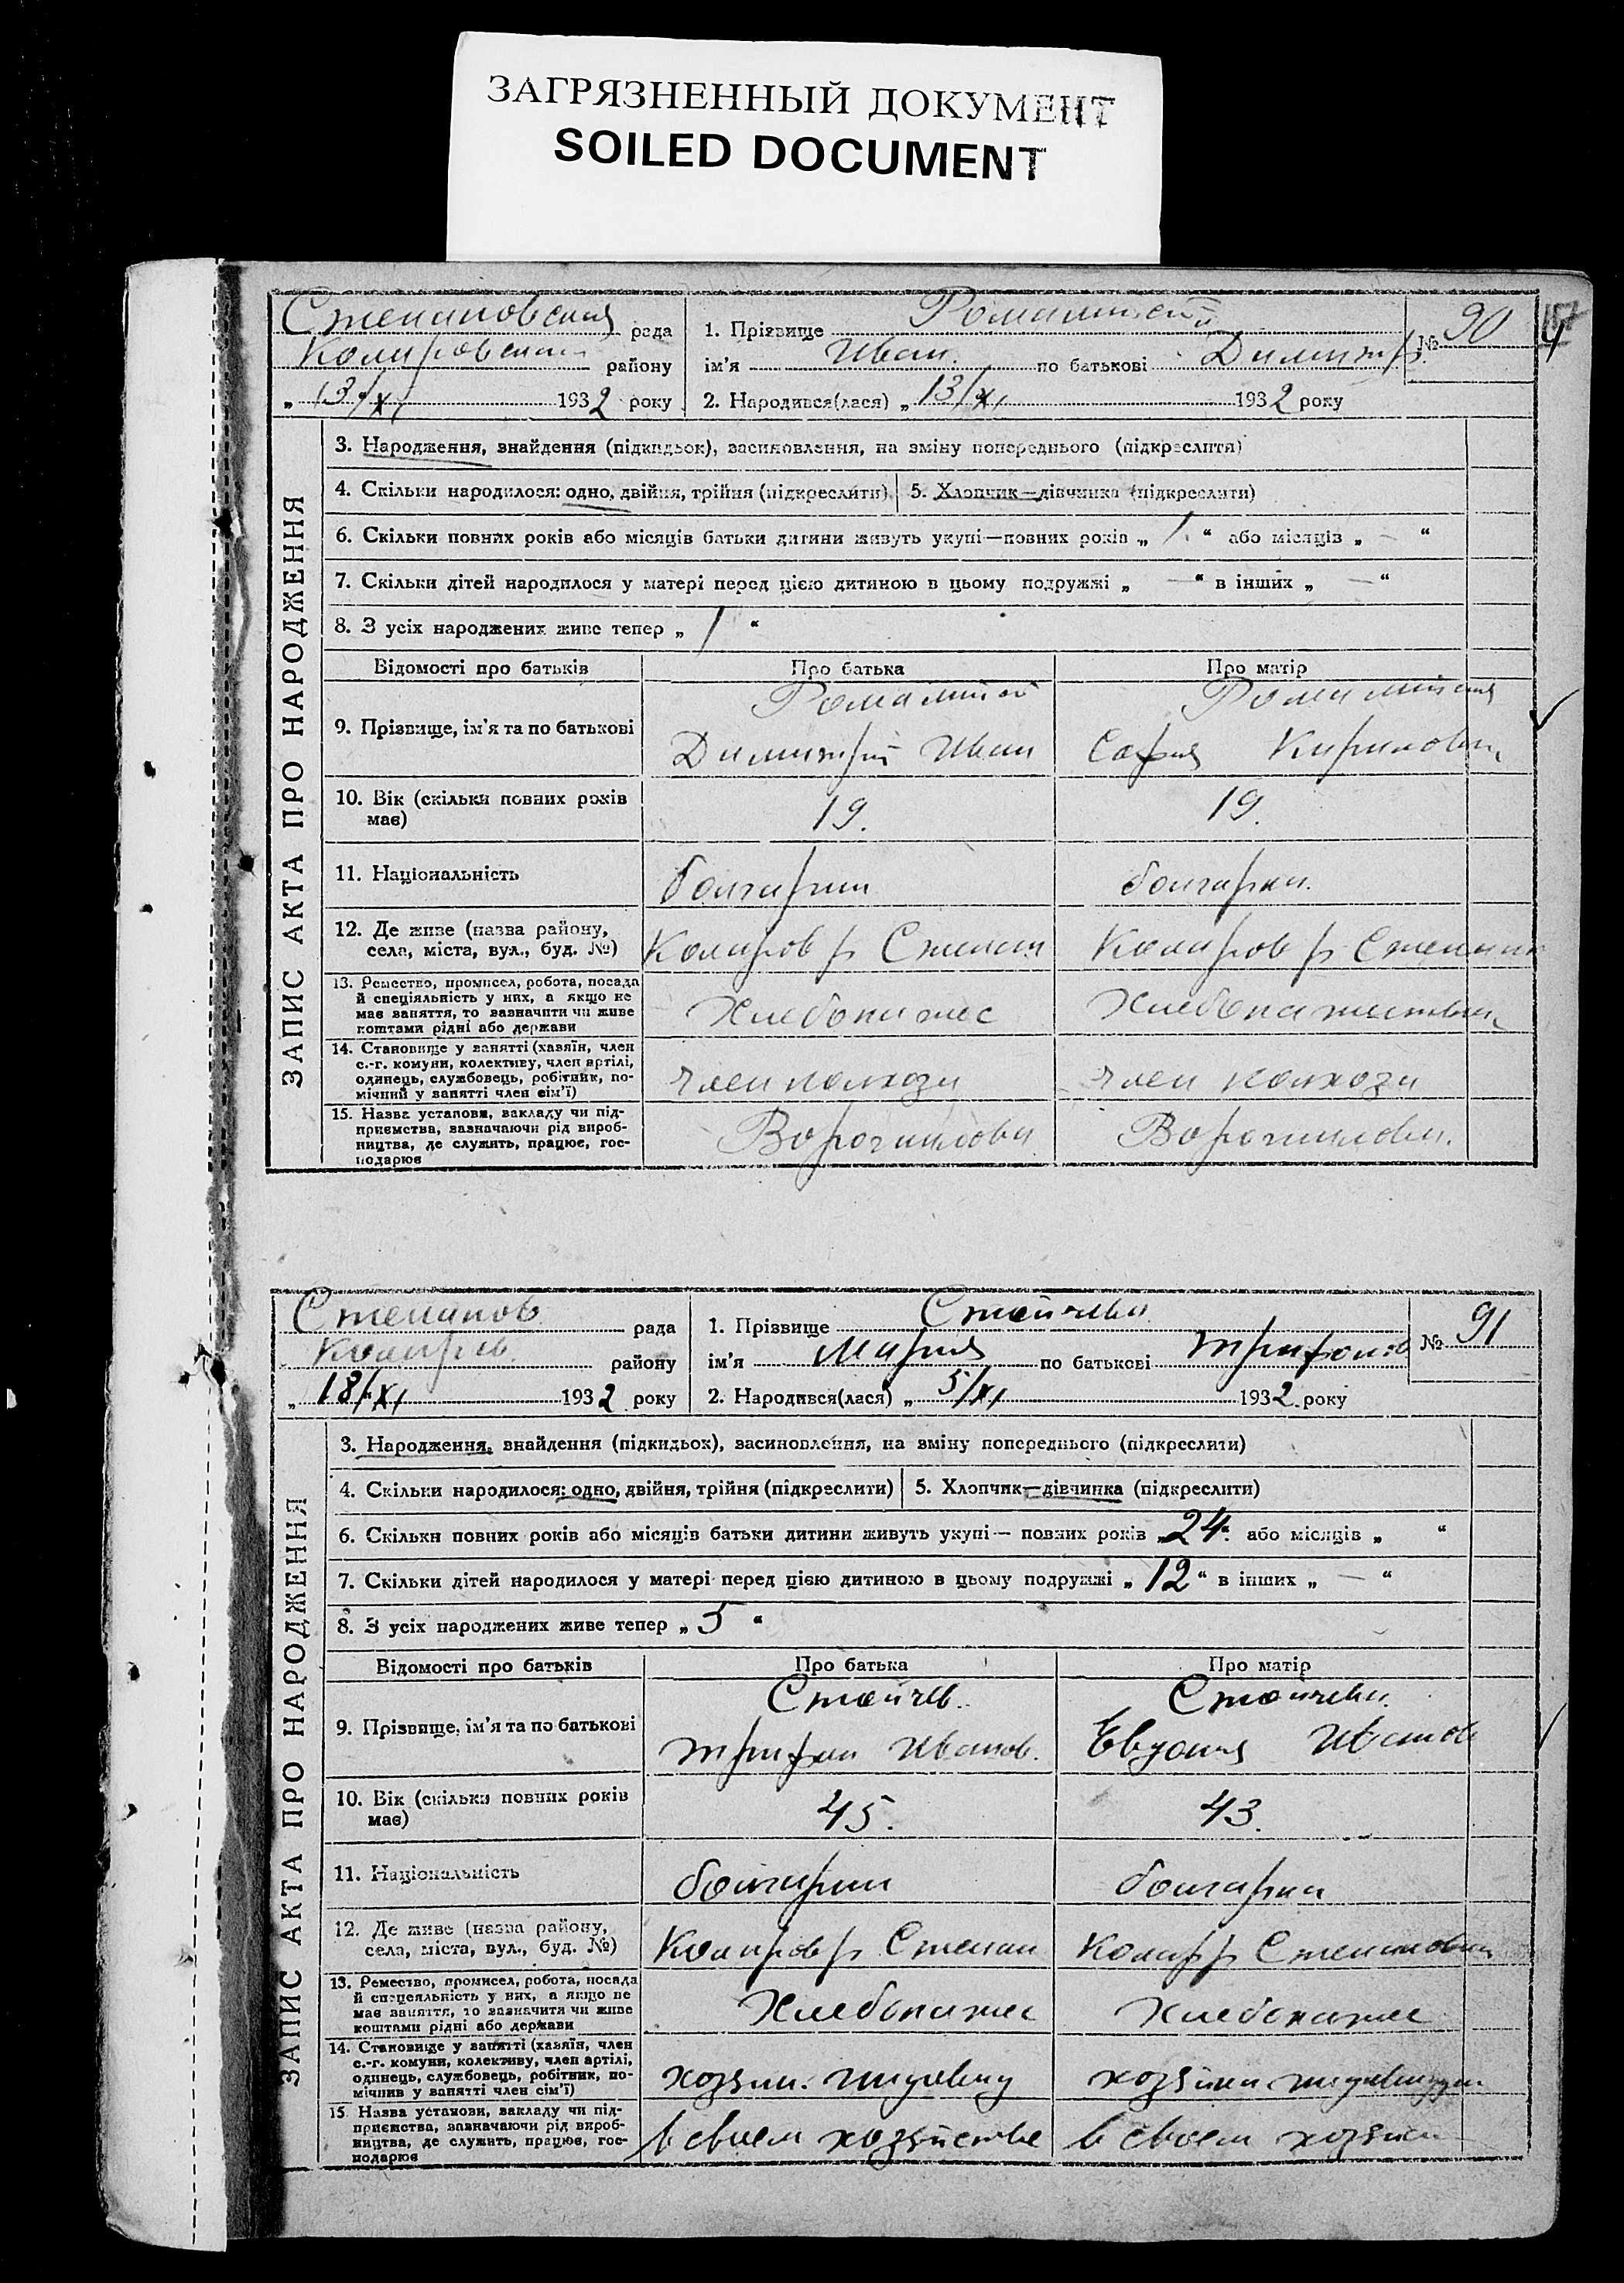 ЗАГРЯЗНЕННЫЙ ДОКУМЕНТ
SOILED DOCUMENT
Степановская рада
района району
„ 13/XI 1932 року
1. Прізвище
ім'я Иван. по батькові Димитр.
№ 90
2. Народився(лася) „ 13/XI 1932 року
ЗАПИС АКТА ПРО НАРОДЖЕННЯ
3. Народження, знайдення (підкидьок), засиновлення, на зміну попереднього (підкреслити)
4. Скільки народилося: одно, двійня, трійня (підкреслити)
5. Хлопчик—дівчинка (підкреслити)
6. Скільки повних років або місяців батьки дитини живуть укупі—повних років „ 1. “ або місяців „ — “
7. Скільки дітей народилося у матері перед цією дитиною в цьому подружжі „ — “ в інших „ — “
8. З усіх народжених живе тепер „ 1 “
Відомості про батьків Про батька Про матір
9. Прізвище, ім'я та по батькові
Димитрий Иван
София Кирилови
10. Вік (скільки повних років має)
19. 19.
11. Національність
болгарин болгарка.
12. Де живе (назва району, села, міста, вул., буд. №)
р Степан р Степанов
13. Ремество, промисел, робота, посада
й спеціяльність у них, а якщо не
має заняття, то зазначити чи живе
коштами рідні або держави
Хлебопашес
14. Становище у занятті (хазяїн, член
с.-г. комуни, колективу, член артілі,
одинець, службовець, робітник, по-
мічний у занятті член сім'ї)
член колхоза член колхоза
15. Назва установи, закладу чи під-
приємства, зазначаючи рід вироб-
ництва, де служить, працює, гос-
подарює
Ворошилова Ворошилова.
Степанов рада
району
„ 18/XI 1932 року
1. Прізвище Стойчева
ім'я Мария по батькові Трифонов
№ 91
2. Народився(лася) „ 5/XI 1932 року
ЗАПИС АКТА ПРО НАРОДЖЕННЯ
3. Народження, знайдення (підкидьок), засиновлення, на зміну попереднього (підкреслити)
4. Скільки народилося: одно, двійня, трійня (підкреслити)
5. Хлопчик—дівчинка (підкреслити)
6. Скільки повних років або місяців батьки дитини живуть укупі— повних років „ 24 “ або місяців „ “
7. Скільки дітей народилося у матері перед цією дитиною в цьому подружжі „ 12 “ в інших „ — “
8. З усіх народжених живе тепер „ 5 “
Відомості про батьків Про батька Про матір
Стойчев. Стойчева.
9. Прізвище, ім'я та по батькові
Трифон Иванов. Евдокия Иванов
10. Вік (скільки повних років має)
45. 43.
11. Національність
болгарин болгарка
12. Де живе (назва району, села, міста, вул., буд. №)
р Степан р Степановка
13. Ремество, промисел, робота, посада
й спецеяльність у них, а якщо не
має заняття, то зазначити чи живе
коштами рідні або держави
Хлебопашес Хлебопашес
14. Становище у занятті (хазяїн, член
с.-г. комуни, колективу, член артілі,
одинець, службовець, робітник, по-
мічник у занятті член сім'ї)
хозяин. индивид хозяйка
15. Назва установи, закладу чи під-
приємства, зазначаючи рід вироб-
ництва, де служить, працює, гос-
подарює
в своем хозяйстве в своем хозяйс